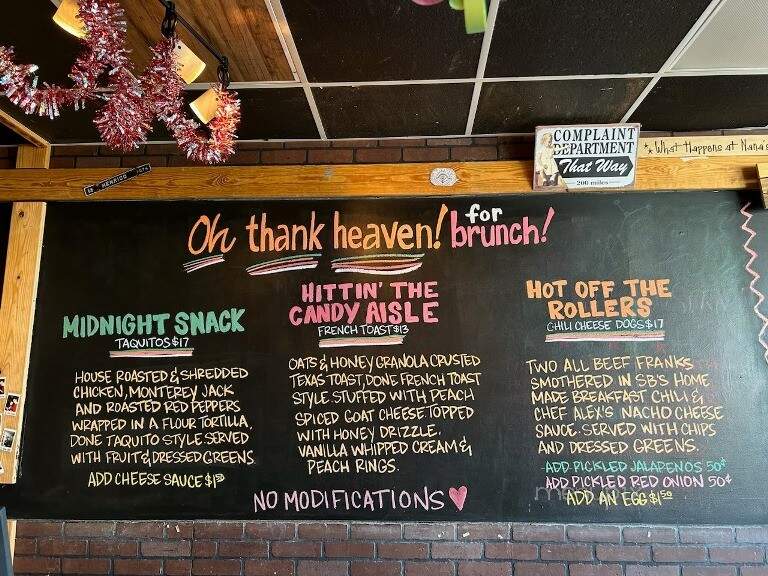 COMPLAINT
DEPARTMENT
That Way
200 miles
What Happens at Nana's
Oh thank heaven! for brunch!
MIDNIGHT SNACK
TAQUITOS $17
HOUSE ROASTED & SHREDDED
CHICKEN, MONTEREY JACK
AND ROASTED RED PEPPERS
WRAPPED IN A FLOUR TORTILLA,
DONE TAQUITO STYLE. SERVED
WITH FRUIT & DRESSED GREENS.
ADD CHEESE SAUCE $1.50
HITTIN' THE
CANDY AISLE
FRENCH TOAST $13
OATS & HONEY GRANOLA CRUSTED
TEXAS TOAST, DONE FRENCH TOAST
STYLE. STUFFED WITH PEACH
SPICED GOAT CHEESE. TOPPED
WITH HONEY DRIZZLE,
VANILLA WHIPPED CREAM &
PEACH RINGS.
HOT OFF THE
ROLLERS
CHILI CHEESE DOGS $17
TWO ALL BEEF FRANKS
SMOTHERED IN SB'S HOME
MADE BREAKFAST CHILI &
CHEF ALEX'S NACHO CHEESE
SAUCE. SERVED WITH CHIPS
AND DRESSED GREENS.
-ADD PICKLED JALAPENOS 50¢
ADD PICKLED RED ONION 50¢
ADD AN EGG $1.50
NO MODIFICATIONS